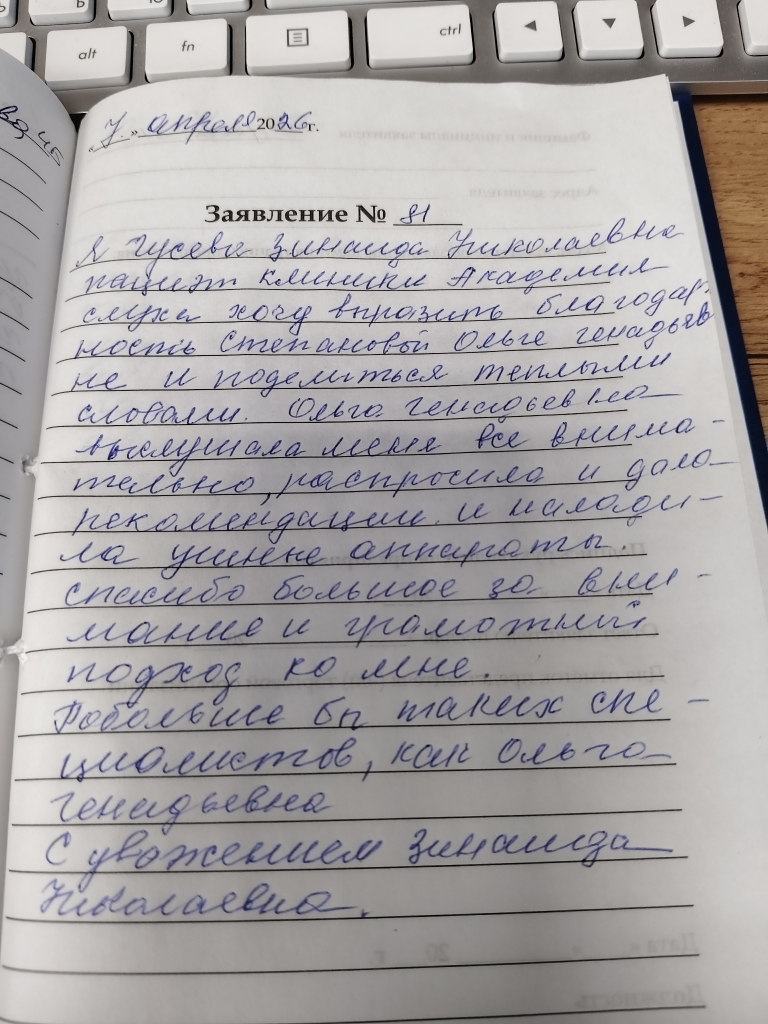 alt
fn
ctrl
„7.” апреля 2026г.
Заявление № 81
Я Гусева Зинаида Николаевна
пациэт клиники Академия
слуха хочу выразить благодар-
ность Степановой Ольге Генадьев
не и поделиться теплыми
словами. Ольга Генадьевна
выслушала меня все внима-
тельно, распросила и дала
рекомендации. и налади-
ла ушные аппараты.
спасибо большое за вни-
мание и грамотный
подход ко мне.
Побольше бы таких спе-
циалистов, как Ольга
Генадьевна
С уважением Зинаида
Николаевна.